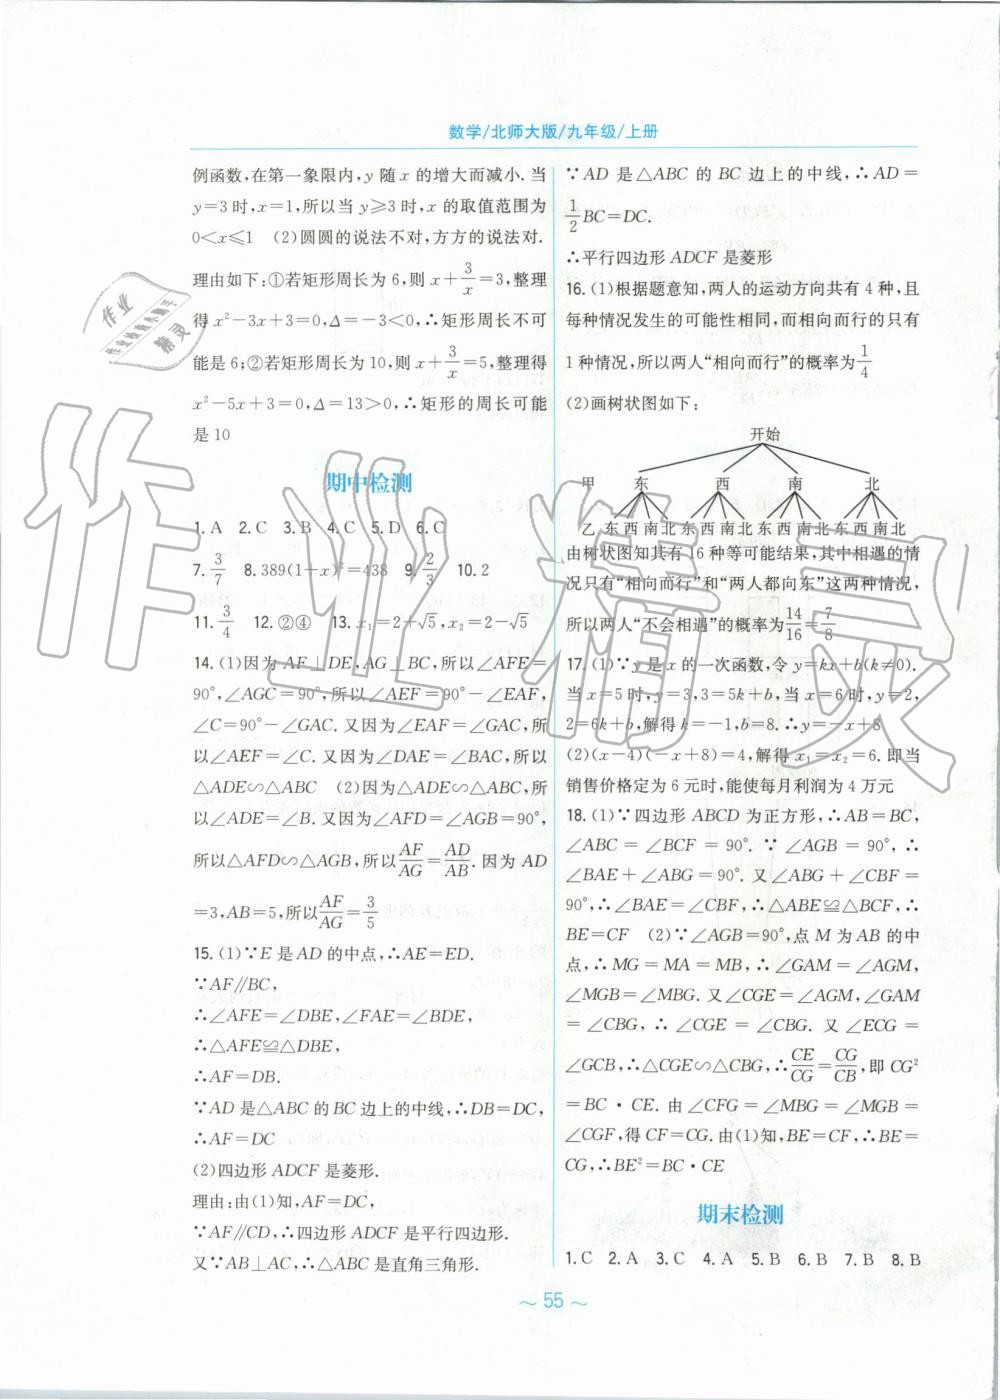 数学/北师大版/九年级/上册
例函数,在第一象限内,y 随 x 的增大而减小. 当
y=3 时,x=1,所以当 y⩾3 时,x 的取值范围为
0<x⩽1 (2)圆圆的说法不对,方方的说法对.
理由如下:①若矩形周长为 6,则 x+3/x=3,整理
得 x²-3x+3=0,Δ=-3<0,∴矩形周长不可
能是 6;②若矩形周长为 10,则 x+3/x=5,整理得
x²-5x+3=0,Δ=13>0,∴矩形的周长可能
是 10
期中检测
1. A 2. C 3. B 4. C 5. D 6. C
7. 3/7 8. 389(1+x)²=438 9. 2/3 10. 2
11. 3/4 12. ②④ 13. x₁=2+√5,x₂=2-√5
14. (1)因为 AF⊥DE,AG⊥BC,所以∠AFE=
90°,∠AGC=90°,所以∠AEF=90°-∠EAF,
∠C=90°-∠GAC. 又因为∠EAF=∠GAC,所
以∠AEF=∠C. 又因为∠DAE=∠BAC,所以
△ADE∽△ABC (2)因为△ADE∽△ABC,所
以∠ADE=∠B. 又因为∠AFD=∠AGB=90°,
所以△AFD∽△AGB,所以AF/AG=AD/AB. 因为 AD
=3,AB=5,所以AF/AG=3/5
15. (1)∵E 是 AD 的中点,∴AE=ED.
∵AF∥BC,
∴∠AFE=∠DBE,∠FAE=∠BDE,
∴△AFE≌△DBE,
∴AF=DB.
∵AD 是△ABC 的 BC 边上的中线,∴DB=DC,
∴AF=DC
(2)四边形 ADCF 是菱形.
理由:由(1)知,AF=DC,
∵AF∥CD,∴四边形 ADCF 是平行四边形.
又∵AB⊥AC,∴△ABC 是直角三角形.
∵AD 是△ABC 的 BC 边上的中线,∴AD=
1/2BC=DC.
∴平行四边形 ADCF 是菱形
16. (1)根据题意知,两人的运动方向共有 4 种,且
每种情况发生的可能性相同,而相向而行的只有
1 种情况,所以两人“相向而行”的概率为1/4
(2)画树状图如下:
开始
甲 东 西 南 北
乙 东 西 南 北 东 西 南 北 东 西 南 北 东 西 南 北
由树状图知其有 16 种等可能结果,其中相遇的情
况只有“相向而行”和“两人都向东”这两种情况,
所以两人“不会相遇”的概率为14/16=7/8
17. (1)∵y 是 x 的一次函数,令 y=kx+b(k≠0).
当 x=5 时,y=3,3=5k+b,当 x=6 时,y=2,
2=6k+b,解得 k=-1,b=8. ∴y=-x+8
(2)(x-4)(-x+8)=4,解得 x₁=x₂=6. 即当
销售价格定为 6 元时,能使每月利润为 4 万元
18. (1)∵四边形 ABCD 为正方形,∴AB=BC,
∠ABC=∠BCF=90°. ∵∠AGB=90°,∴
∠BAE+∠ABG=90°. 又∠ABG+∠CBF=
90°,∴∠BAE=∠CBF,∴△ABE≌△BCF,∴
BE=CF (2)∵∠AGB=90°,点 M 为 AB 的中
点,∴MG=MA=MB,∴∠GAM=∠AGM,
∠MGB=∠MBG. 又∠CGE=∠AGM,∠GAM
=∠CBG,∴∠CGE=∠CBG. 又∠ECG=
∠GCB,∴△CGE∽△CBG,∴CE/CG=CG/CB,即 CG²
=BC·CE. 由∠CFG=∠MBG=∠MGB=
∠CGF,得 CF=CG. 由(1)知,BE=CF,∴BE=
CG,∴BE²=BC·CE
期末检测
1. C 2. A 3. C 4. A 5. B 6. B 7. B 8. B
~ 55 ~
作业精灵
作业
精灵